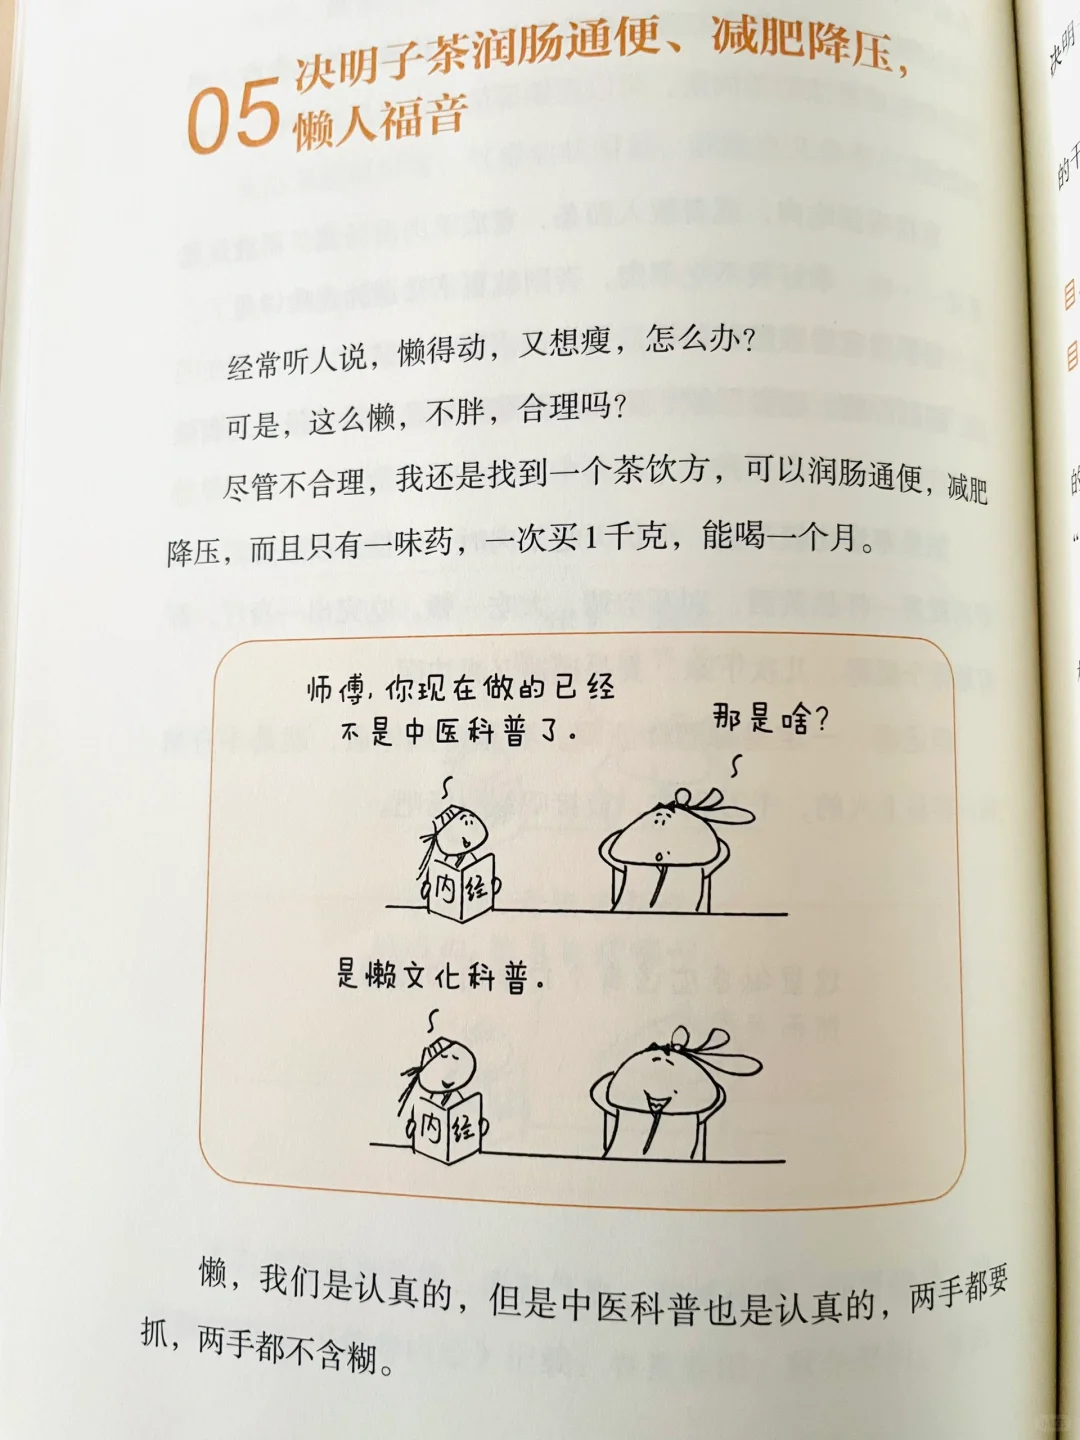 05
决明子茶润肠通便、减肥降压，
懒人福音
经常听人说，懒得动，又想瘦，怎么办？
可是，这么懒，不胖，合理吗？
尽管不合理，我还是找到一个茶饮方，可以润肠通便，减肥
降压，而且只有一味药，一次买1千克，能喝一个月。
师傅，你现在做的已经
不是中医科普了．
那是啥？
内经
是懒文化科普．
内经
懒，我们是认真的，但是中医科普也是认真的，两手都要
抓，两手都不含糊。
决明
的干
目
目
的